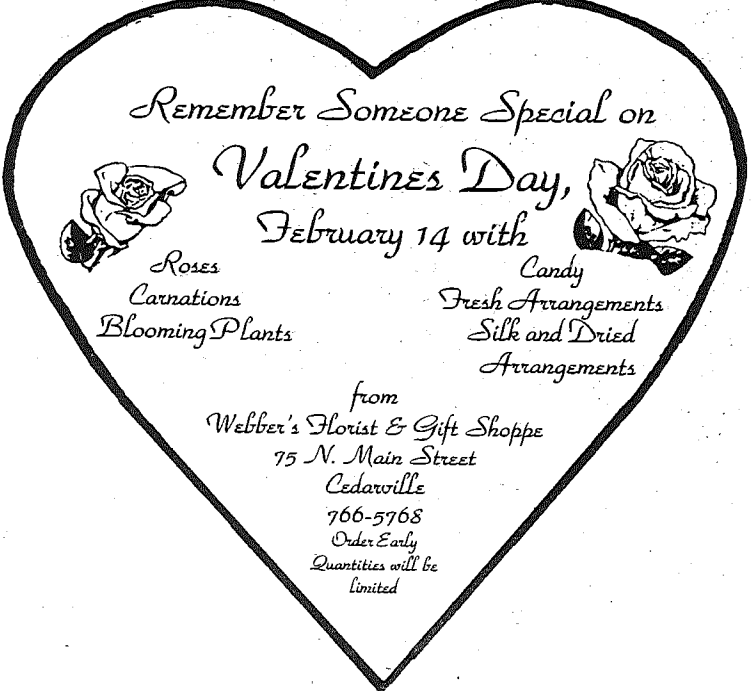 Remember Someone Special on
Valentines Day,
February 14 with
Roses
Carnations
Blooming Plants
Candy
Fresh Arrangements
Silk and Dried
Arrangements
from
Webber's Florist & Gift Shoppe
75 N. Main Street
Cedarville
766-5768
Order Early
Quantities will be
limited